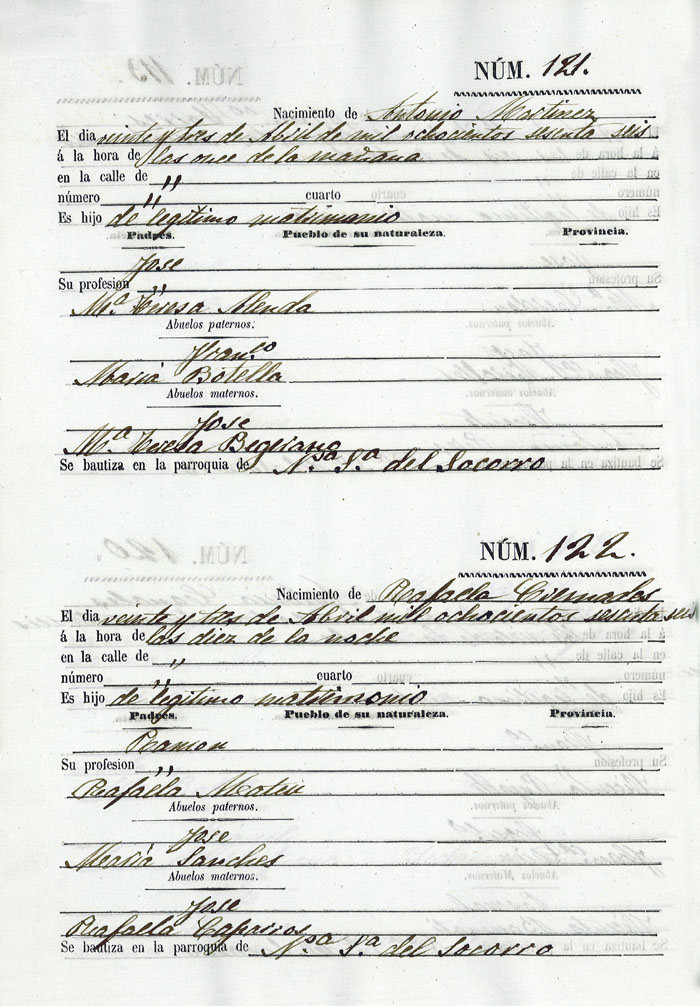 NÚM. 121.
Nacimiento de Antonio Martinez
El dia veinte y tres de Abril de mil ochocientos sesenta seis
á la hora de las once de la mañana
en la calle de „
número „ cuarto
Es hijo de legitimo matrimonio
Padres. Pueblo de su naturaleza. Provincia.
Jose
Su profesion „
Mª Teresa Alenda
Abuelos paternos.
Franco
Maria Botella
Abuelos maternos.
Jose
Mª Teresa Begerano
Se bautiza en la parroquia de Nra Sª del Socorro
NÚM. 122.
Nacimiento de Rafaela Cremades
El dia veinte y tres de Abril mil ochocientos sesenta seis
á la hora de las diez de la noche
en la calle de „
número „ cuarto
Es hijo de legitimo matrimonio
Padres. Pueblo de su naturaleza. Provincia.
Ramon
Su profesion „
Rafaela Mateu
Abuelos paternos.
Jose
Maria Sanches
Abuelos maternos.
Jose
Rafaela Caparros
Se bautiza en la parroquia de Nra Sª del Socorro